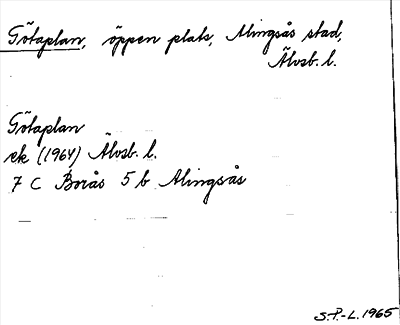 Götaplan, öppen plats, Alingsås stad,
Älvsb. l.
Götaplan
ek (1964) Älvsb. l.
7 C Borås 5 b Alingsås
S.P.-L. 1965